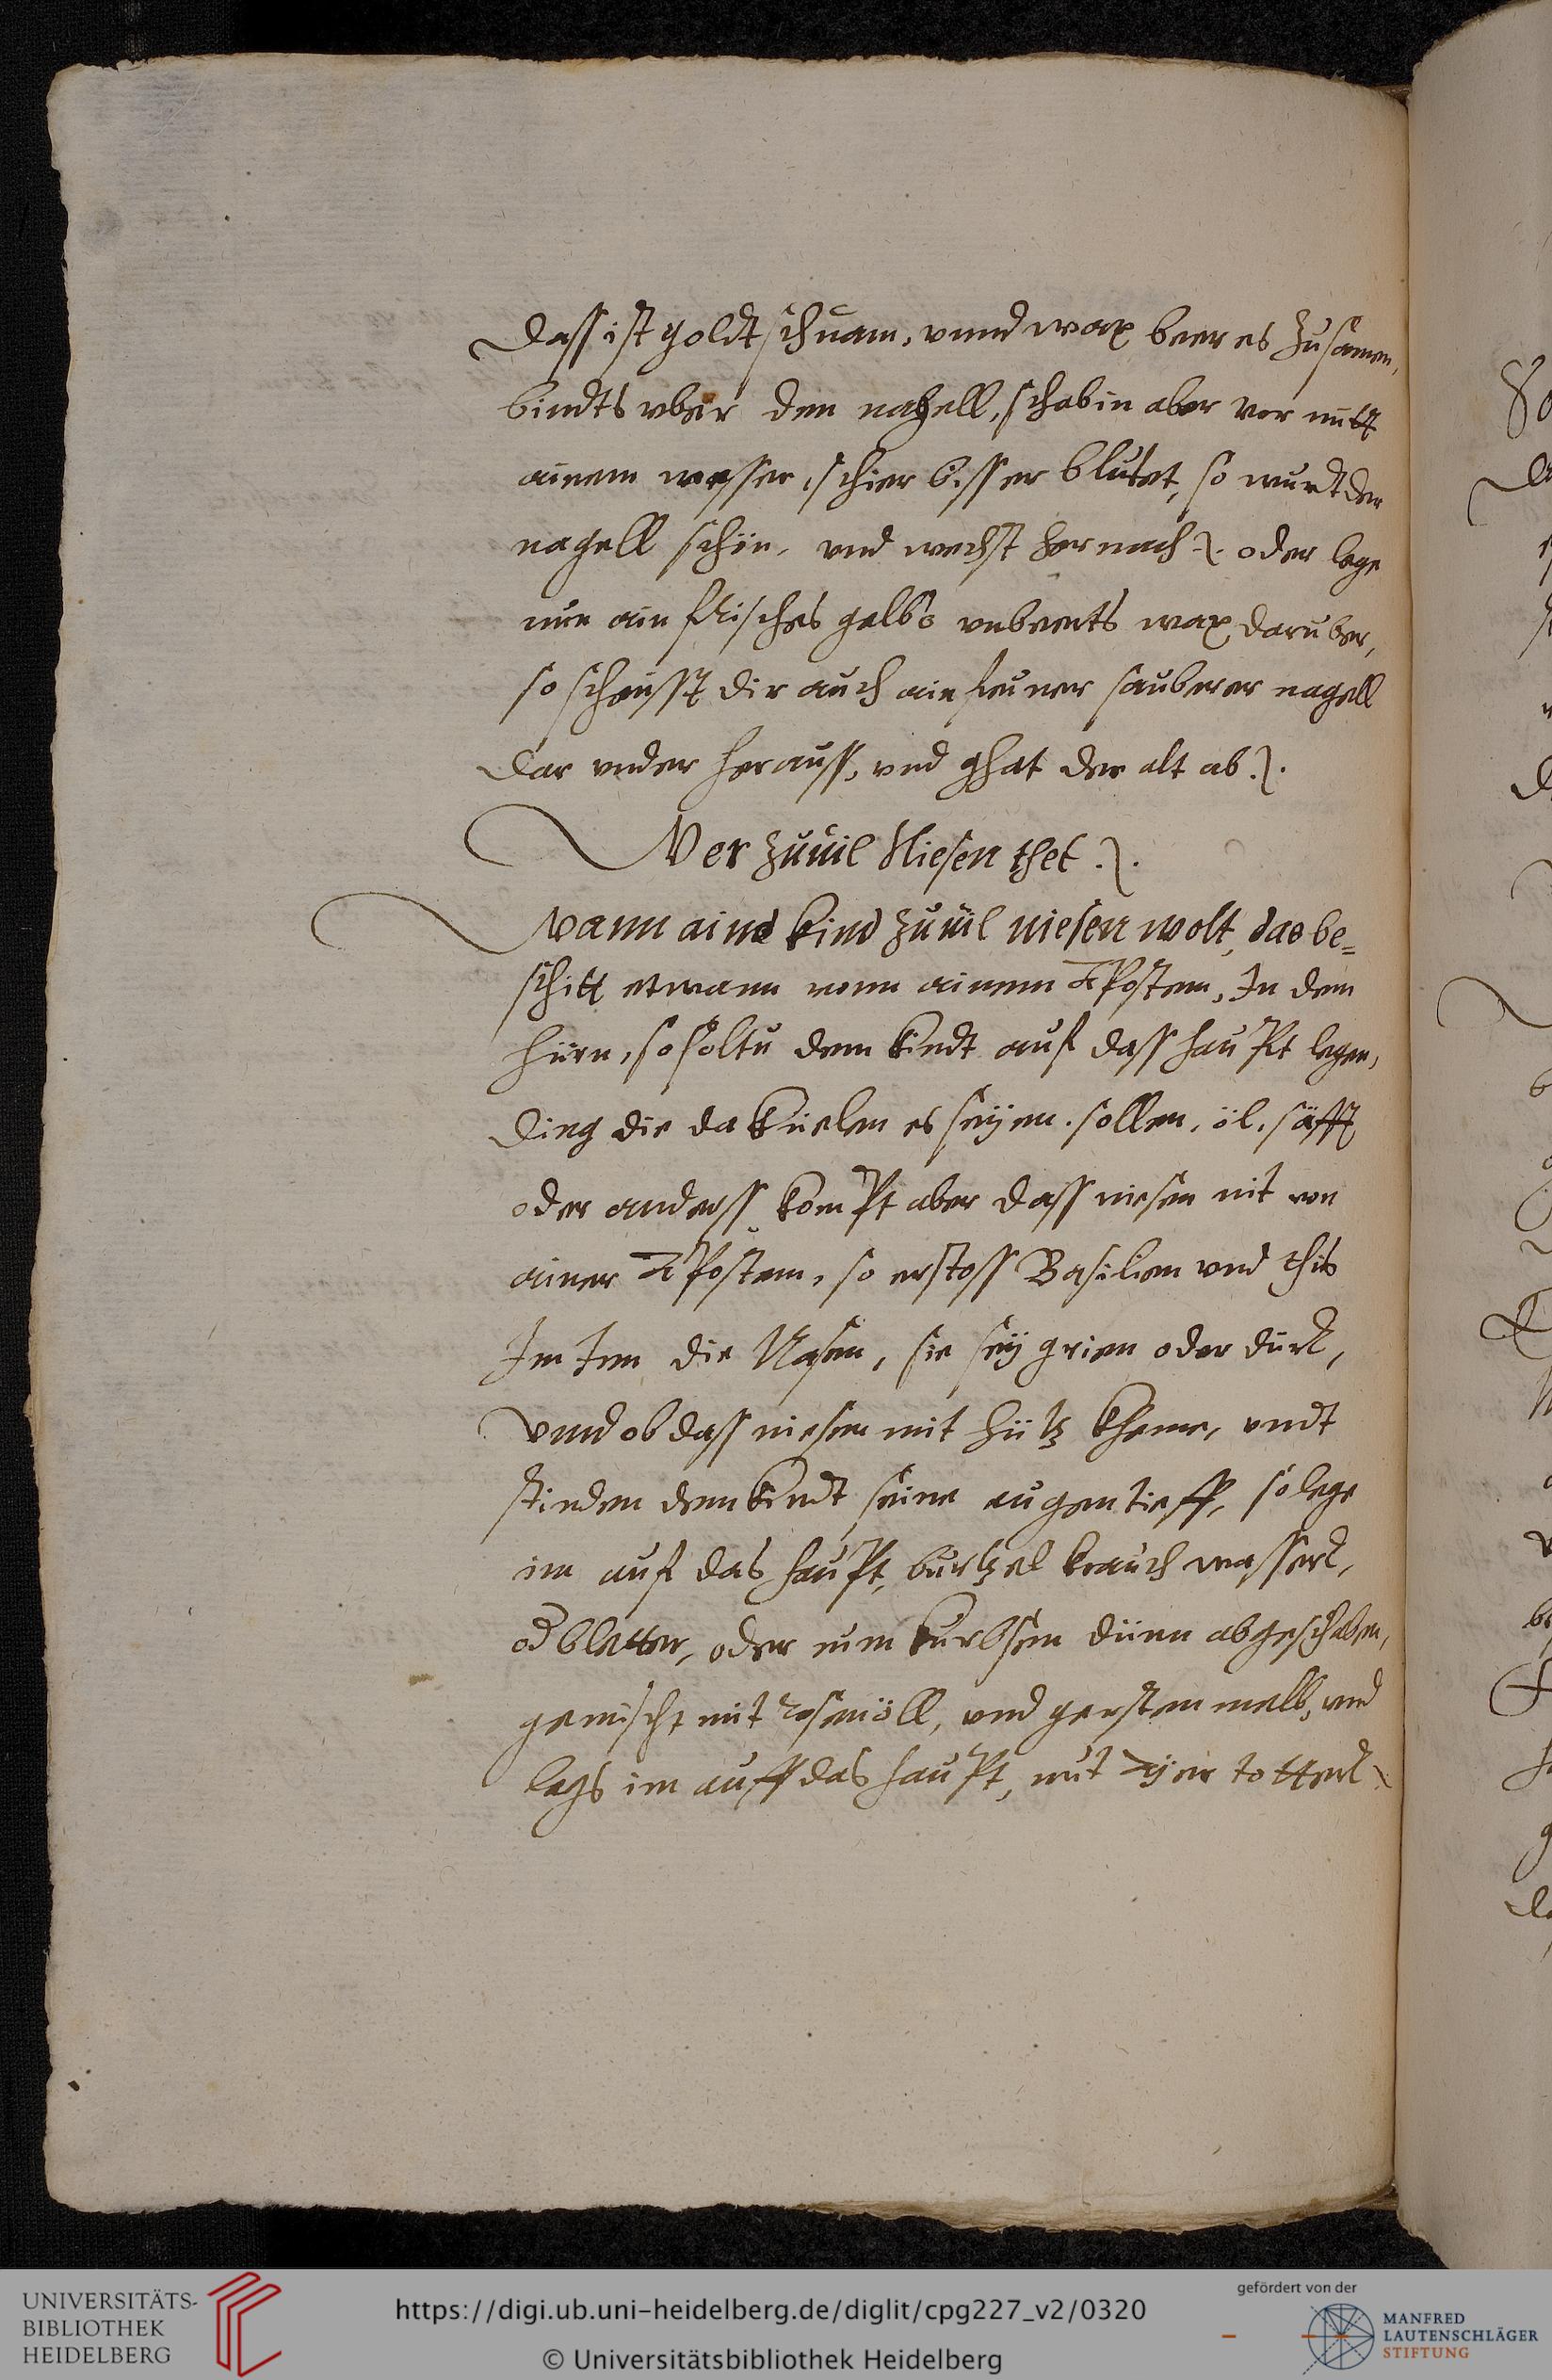 dass ist goldtschuam, vnnd wax beer es zusamen,
bindts vber den nagell, schab in aber vor mitt
ainem messer, schier bisser blutet, so wurdt der
nagell schön, vnd wechst hernach oder lege
nur ain frisches gelbs vnbereits wax daruber,
so scheusst dir auch ain feuner sauberer nagell
dar vnder herauss, vnd ghat der alt ab.
Wer zuuil Niesen thet.
Wann aind kind zuuil niesen wolt, das be=
schitt etwann vonn ainem Apostem, In dem
hiirn, so soltu dem kindt auf dass haupt legen,
ding die da küelen es seyen. sollen, öl, säfft
oder anderss kompt aber dass niesen nit von
ainer Apostem, so erstoss Basilien vnd this
Im Inn die Nasen, sie sey grien oder dürr,
vnnd ob dass niesen mit hiitz kheme, vndt
stinden dem kindt seine augen tieff, so lege
im auf das haupt, burtzel krauch wasser,
od bletter, oder nim kurbsen dünn abgeschaben,
gemischt mit rosenöll, vnd gersten melb, vnd
legs im auff das haupt, mit Ayer totter
UNIVERSITÄTS-
BIBLIOTHEK
HEIDELBERG
https://digi.ub.uni-heidelberg.de/diglit/cpg227_v2/0320
© Universitätsbibliothek Heidelberg
gefördert von der
MANFRED
LAUTENSCHLÄGER
STIFTUNG